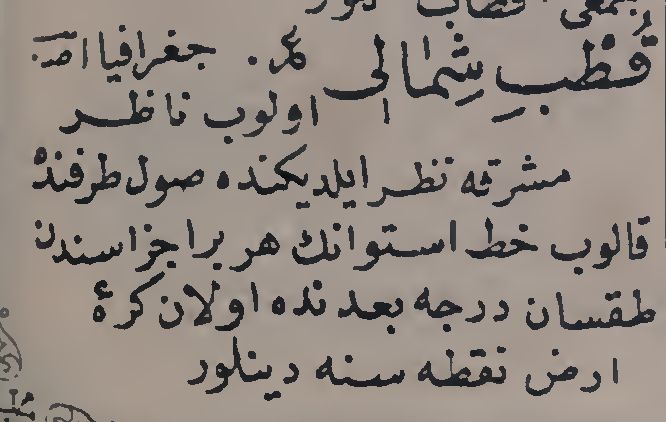 جمعى اقطاب كلور
قُطْبِ شِمَالِى عر. جغرافيا اصـ.
اولوب ناظر
مشرقه نظر ايلديكنده صول طرفنده
قالوب خط استوانك هر بر اجزاسندن
طقسان درجه بعدنده اولان كرهٔ
ارض نقطه سنه دينلور